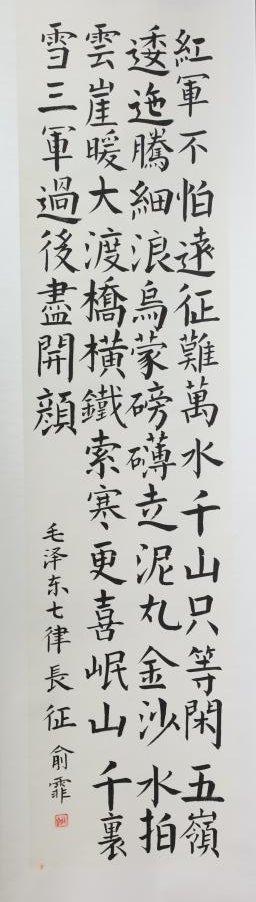 紅軍不怕遠征難萬水千山只等閑五嶺
逶迤騰細浪烏蒙磅礴走泥丸金沙水拍
雲崖暖大渡橋橫鐵索寒更喜岷山千裏
雪三軍過後盡開顏
毛泽东七律長征 俞霏